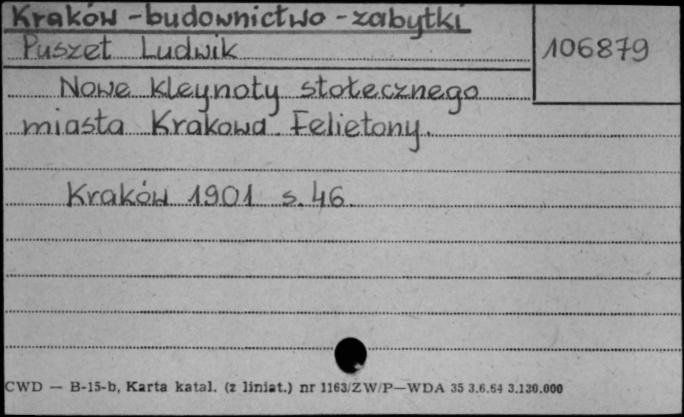 Kraków - budownictwo - zabytki
Puszet Ludwik
106879
Nowe kleynoty stołecznego
miasta Krakowa. Felietony.
Kraków 1901 s. 46.
CWD — B-15-b, Karta katal. (z liniat.) nr 1163/ZW/P—WDA 35 3.6.54 3.130.000